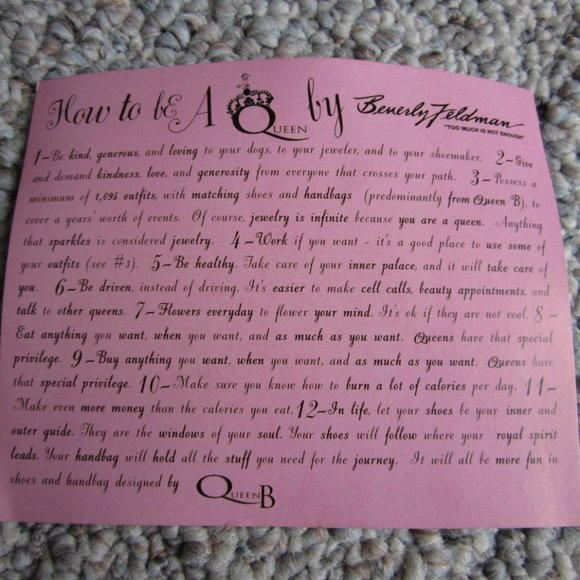 How to be A Queen by Beverly Feldman
"TOO MUCH IS NOT ENOUGH"
1-Be kind, generous, and loving to your dogs, to your jeweler, and to your shoemaker. 2-Give
and demand kindness, love, and generosity from everyone that crosses your path. 3-Possess a
minimum of 1,095 outfits, with matching shoes and handbags (predominantly from Queen B), to
cover a years' worth of events. Of course, jewelry is infinite because you are a queen. Anything
that sparkles is considered jewelry. 4-Work if you want - it's a good place to use some of
your outfits (see #3). 5-Be healthy. Take care of your inner palace, and it will take care of
you. 6-Be driven, instead of driving. It's easier to make cell calls, beauty appointments, and
talk to other queens. 7-Flowers everyday to flower your mind. It's ok if they are not real. 8-
Eat anything you want, when you want, and as much as you want. Queens have that special
privilege. 9-Buy anything you want, when you want, and as much as you want. Queens have
that special privilege. 10-Make sure you know how to burn a lot of calories per day. 11-
Make even more money than the calories you eat.12-In life, let your shoes be your inner and
outer guide. They are the windows of your soul. Your shoes will follow where your royal spirit
leads. Your handbag will hold all the stuff you need for the journey. It will all be more fun in
shoes and handbag designed by QUEENB